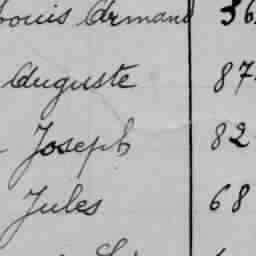 Louis Armand 36
Auguste 87
Joseph 82
Jules 68